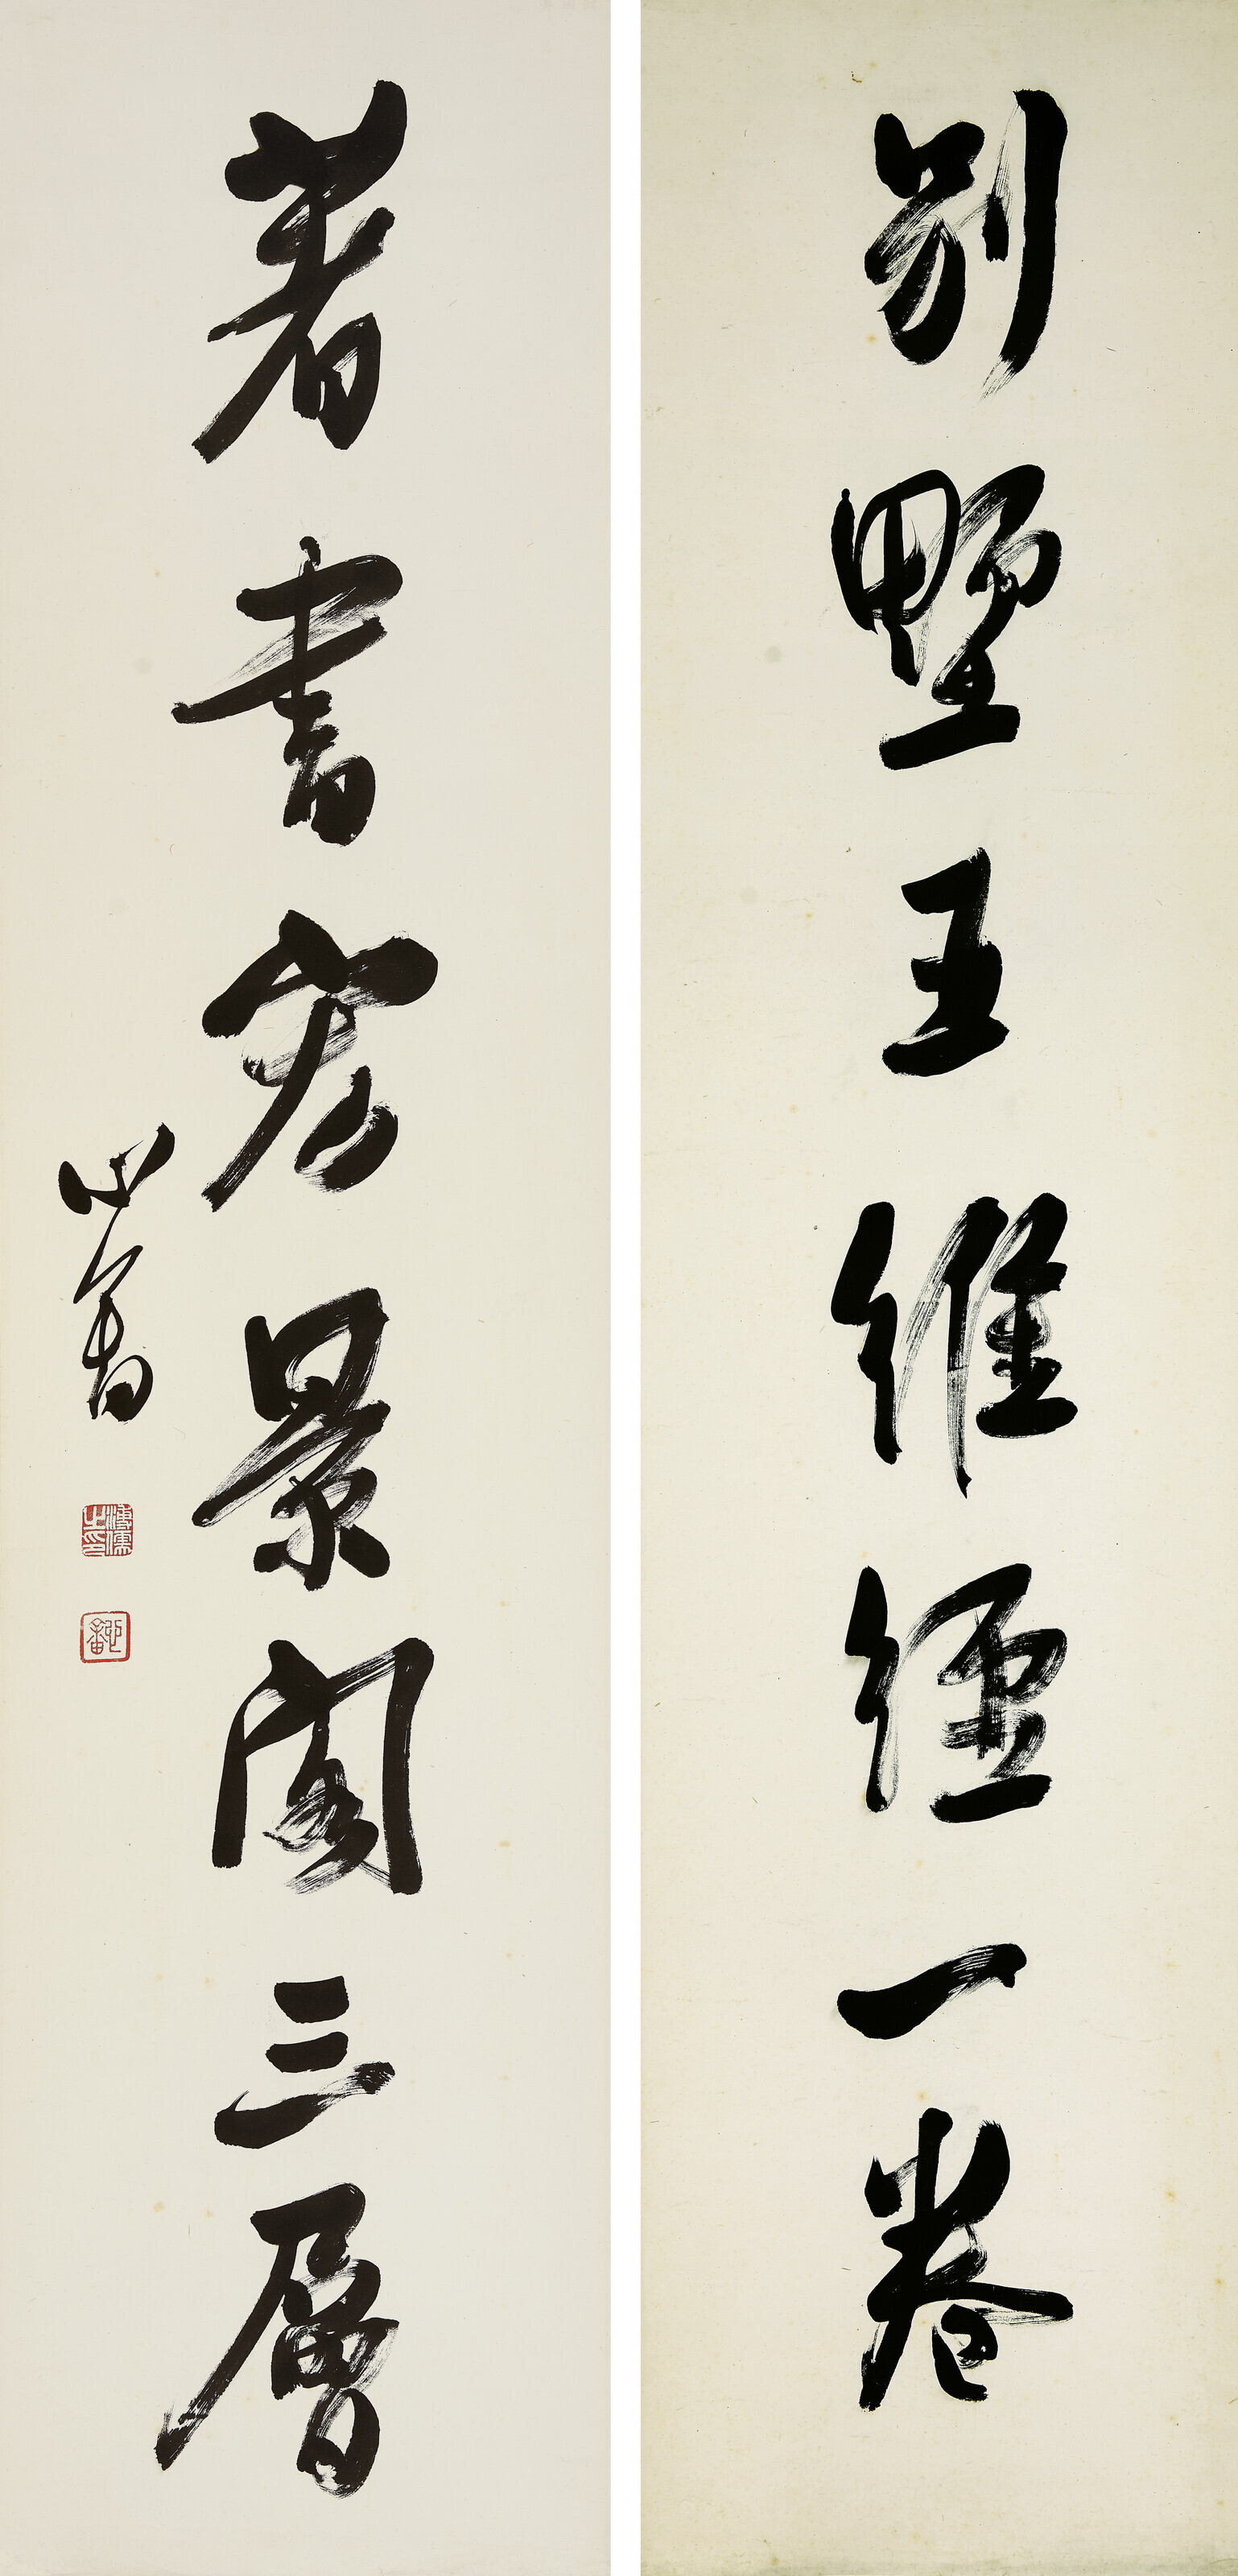 別墅王維經一卷
著書宏景閣三層
心畬
溥儒之印